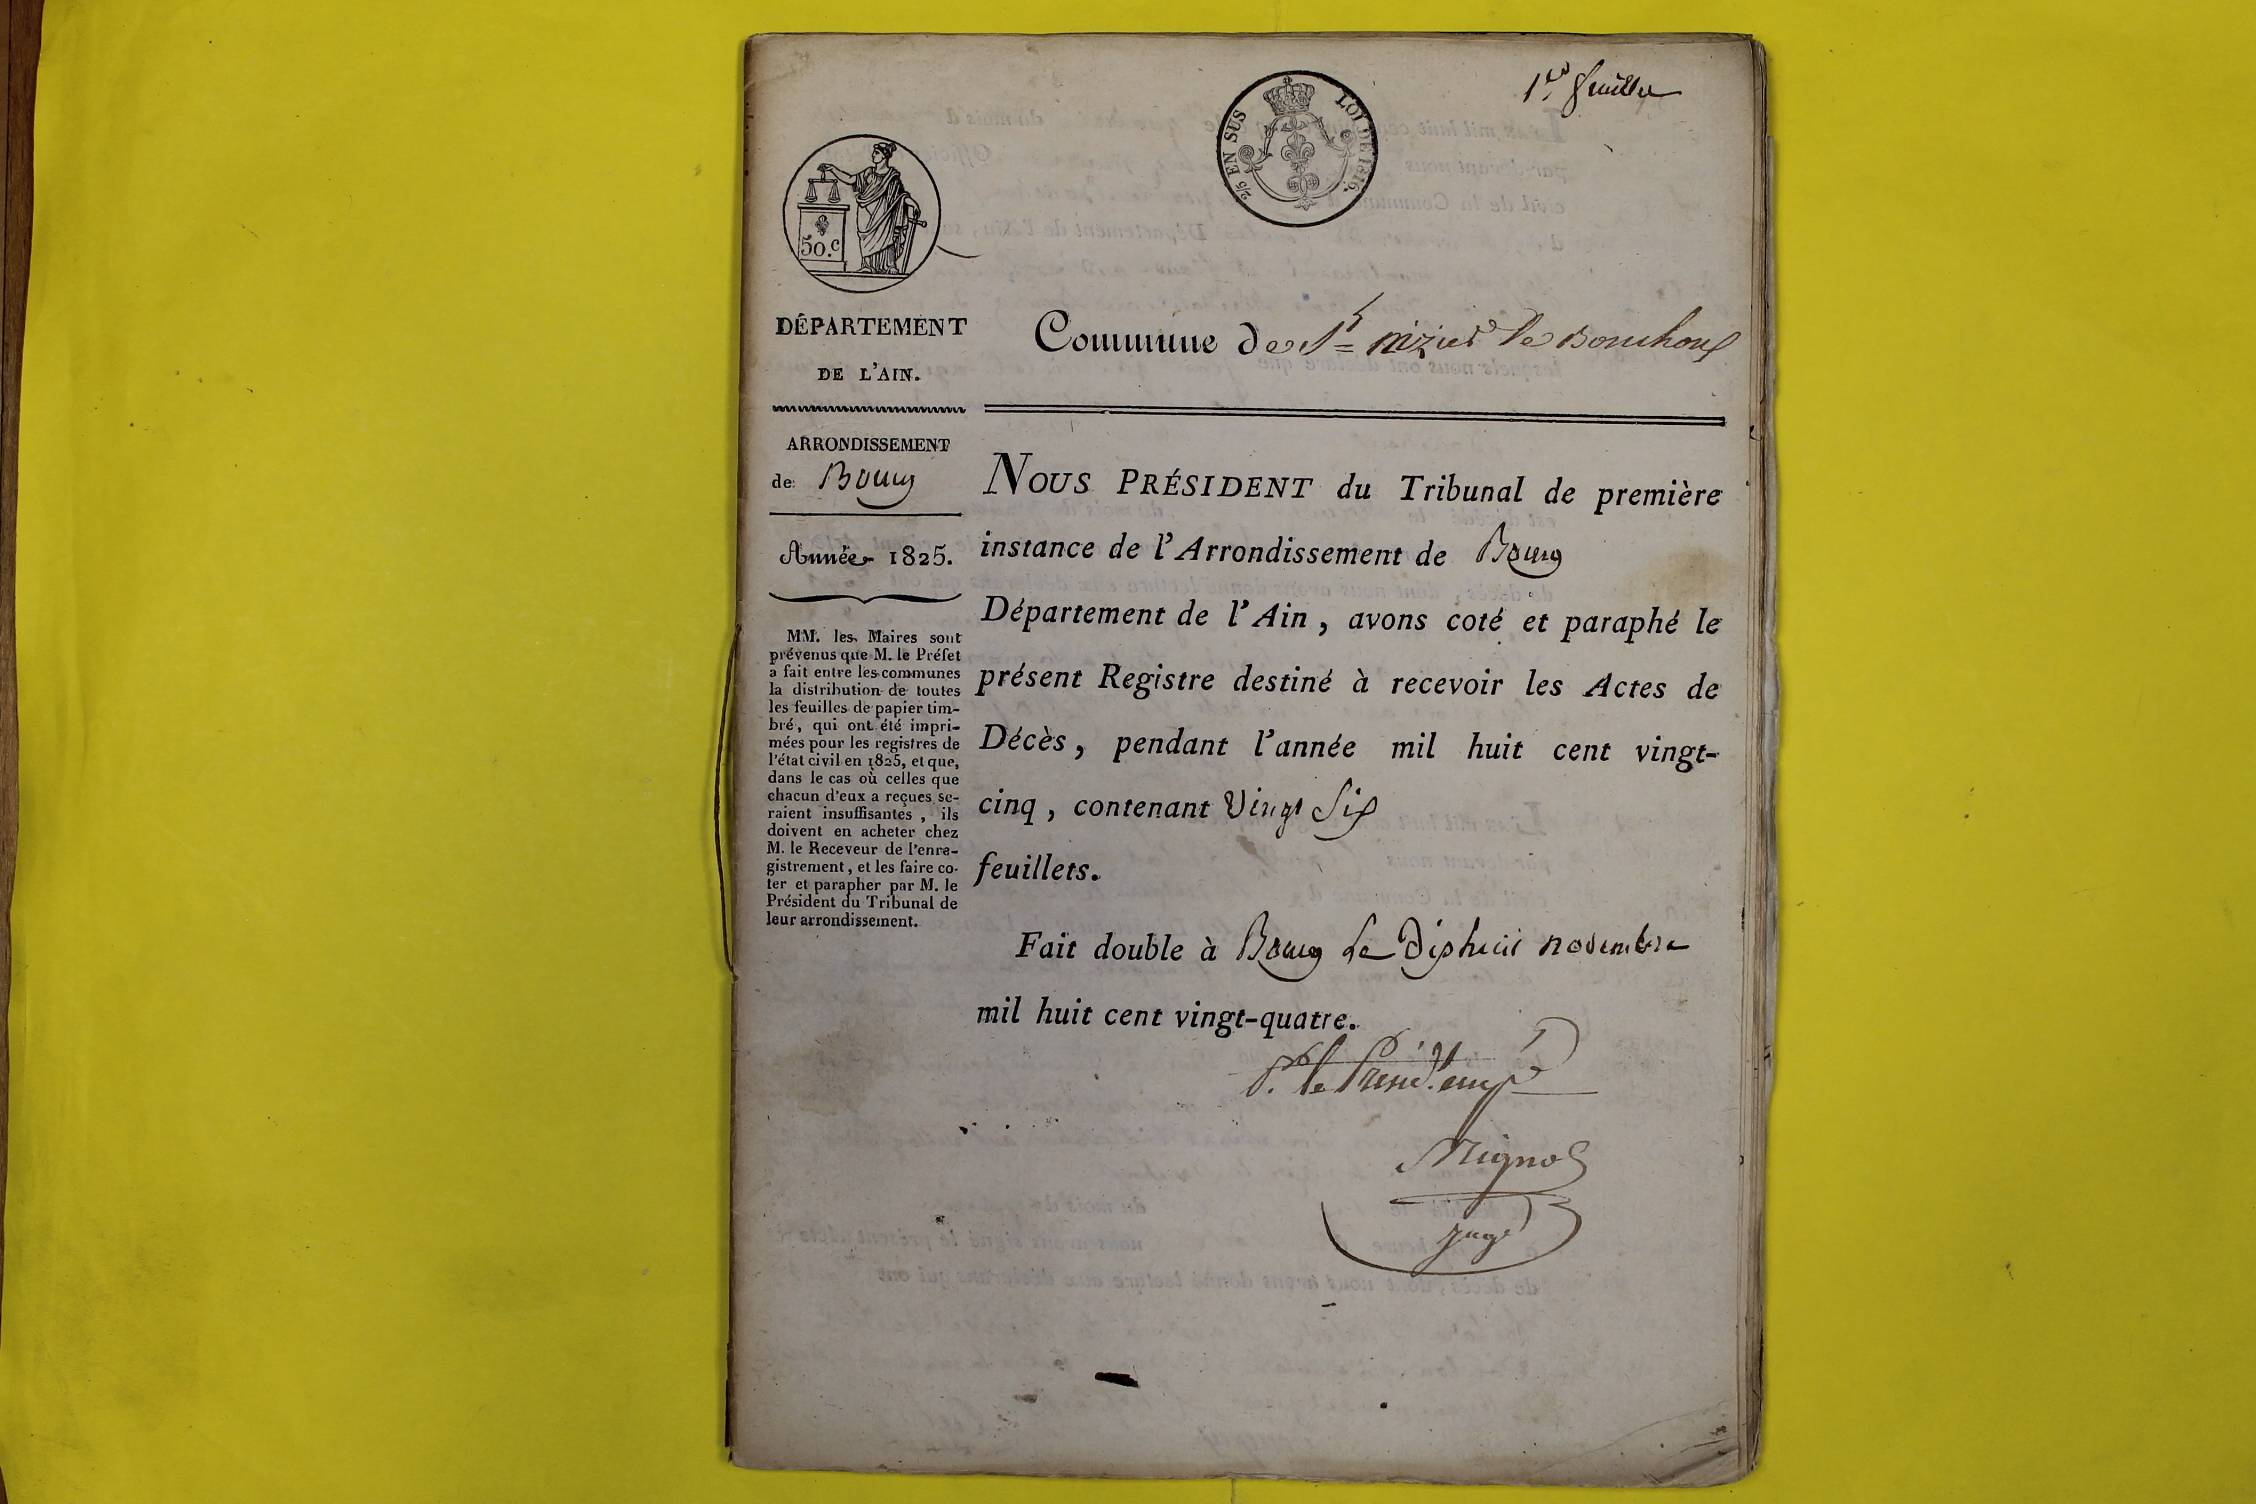 1er feuillet
2/5 EN SUS
LOI DE 1816.
50.c
DÉPARTEMENT
DE L'AIN.
Commune de St nizier le Bouchoux
ARRONDISSEMENT
de Bourg
Année 1825.
MM. les Maires sont
prévenus que M. le Préfet
a fait entre les communes
la distribution de toutes
les feuilles de papier tim-
bré, qui ont été impri-
mées pour les registres de
l'état civil en 1825, et que,
dans le cas où celles que
chacun d'eux a reçues se-
raient insuffisantes, ils
doivent en acheter chez
M. le Receveur de l'enre-
gistrement, et les faire co-
ter et parapher par M. le
Président du Tribunal de
leur arrondissement.
NOUS PRÉSIDENT du Tribunal de première
instance de l'Arrondissement de Bourg
Département de l'Ain, avons coté et paraphé le
présent Registre destiné à recevoir les Actes de
Décès, pendant l'année mil huit cent vingt-
cinq, contenant Vingt Six
feuillets.
Fait double à Bourg Le Dixhuit novembre
mil huit cent vingt-quatre.
P. le Présid. emp.é
juge